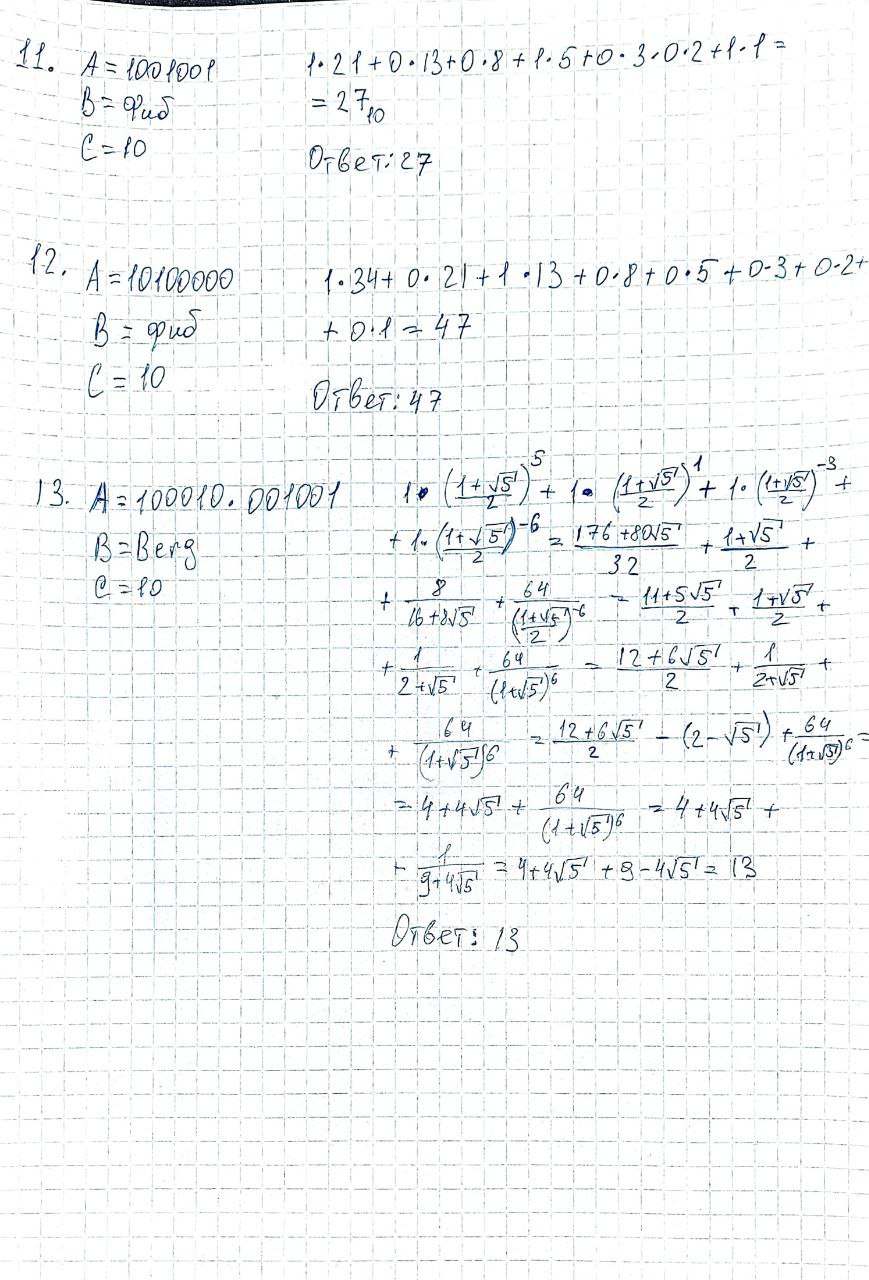 11. A = 1001001 1·21+0·13+0·8+1·5+0·3·0·2+1·1 =
B = Фиб = 27₁₀
C = 10 Ответ: 27
12. A = 10100000 1·34+ 0·21+1·13+0·8+0·5+0·3+0·2+
B = фиб + 0·1 = 47
C = 10 Ответ: 47
13. A = 100010.001001 1·((1+√5)/2)^5 + 1·((1+√5)/2)^1 + 1·((1+√5)/2)^-3 +
B = Berg + 1·((1+√5)/2)^-6 = (176+80√5)/32 + (1+√5)/2 +
C = 10 + 8/(16+8√5) + 64/((1+√5)/2)^-6 = (11+5√5)/2 + (1+√5)/2 +
+ 1/(2+√5) + 64/(1+√5)^6 = (12+6√5)/2 + 1/(2+√5) +
+ 64/(1+√5)^6 = (12+6√5)/2 - (2-√5) + 64/(1+√5)^6 =
= 4+4√5 + 64/(1+√5)^6 = 4+4√5 +
+ 1/(9+4√5) = 4+4√5 + 9-4√5 = 13
Ответ: 13